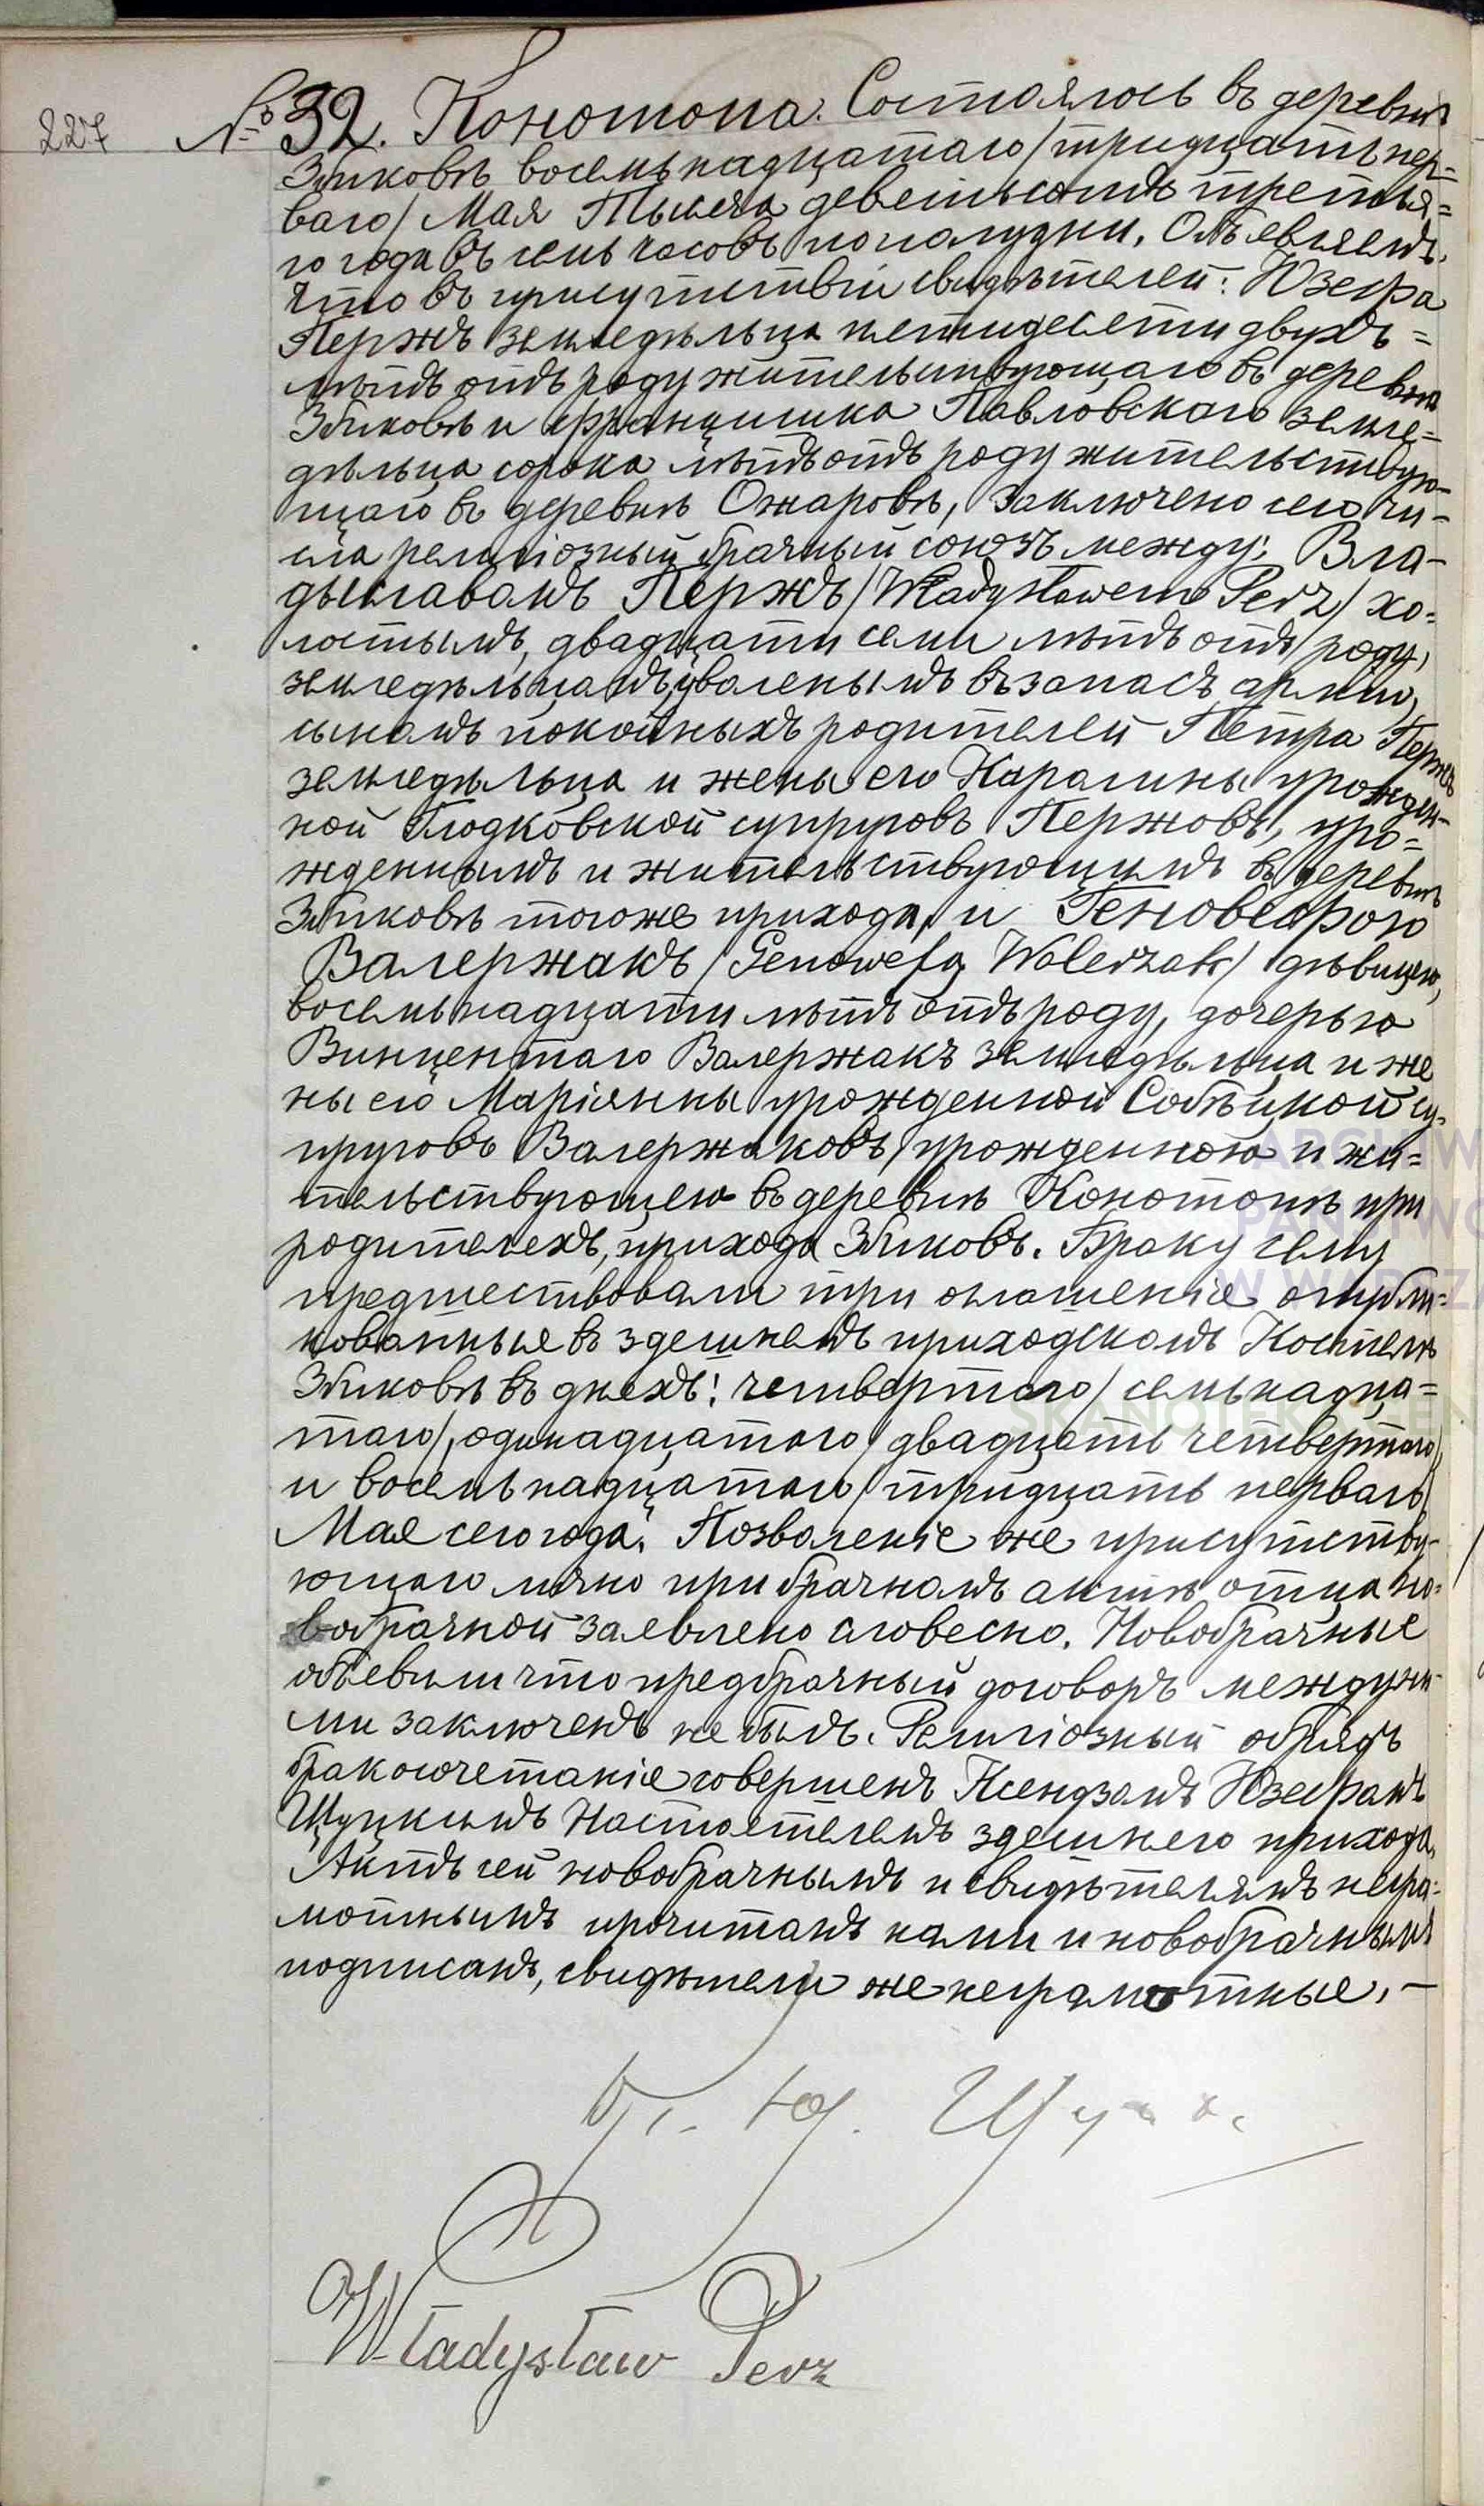 227
№ 32. Конотопа. Состоялось въ деревнѣ
Збиковѣ восемьнадцатаго/тридцать пер-
ваго/ Мая Тысяча девятьсотъ третья=
го года въ семь часовъ пополудни. Объявляемъ,
что въ присутствіи свидѣтелей: Юзефа
Пержъ земледѣльца пятидесяти двухъ=
лѣтъ отъ роду жительствующаго въ деревнѣ
Збиковѣ и Францишка Павловскаго земле=
дѣльца сорока лѣтъ отъ роду жительствую-
щаго въ деревнѣ Ожаровѣ, заключено сего чи-
сла религіозный брачный союзъ между: Вла-
дыславомъ Пержъ /Władysławem Perz/ хо=
лостымъ, двадцати семи лѣтъ отъ роду,
земледѣльцомъ, уволенымъ въ запасъ арміи,
сыномъ покойныхъ родителей Петра Пержъ
земледѣльца и жены его Каролины урожден-
ной Глодковской супруговъ Пержовъ, уро=
жденнымъ и жительствующимъ въ деревнѣ
Збиковѣ тогоже прихода, и Геновефою
Валержакъ /Genowefą Walerzak/ дѣвицею,
восемьнадцати лѣтъ отъ роду, дочерью
Винцентаго Валержакъ земледѣльца и же
ны его Маріянны урожденной Собѣцкой су-
пруговъ Валержаковъ, урожденною и жи=
тельствующею въ деревнѣ Конотопѣ при
родителехъ, прихода Збиковъ. Браку сему
предшествовали три оглашеніе опубли=
кованные въ здешнемъ приходскомъ Костелѣ
Збиковѣ въ днехъ: четвертого/ семьнадца=
таго/, одинадцатого/двадцать четвертаго/
и восемьнадцатаго /тридцать перваго/
Мая сего года. Позволеніе же присутству-
ющаго лично при брачномъ актѣ отца но=
вобрачной заевлено словесно. Новобрачные
объевили что предбрачный договоръ между ни-
ми заключенъ не былъ. Религіозный обрядъ
бракосочетаніе совершенъ Ксендзомъ Юзефомъ
Щуцкимъ Настоятелемъ здешнего прихода.
Актъ сей новобрачнымъ и свидѣтелямъ негра-
мотнымъ прочитанъ нами и новобрачнымъ
подписанъ, свидѣтели же неграмотные. –
Кс. Юз. Щуцкі
Władysław Perz
ARCHIW
PAŃSTWO
W WARSZ
SKANOTEKA